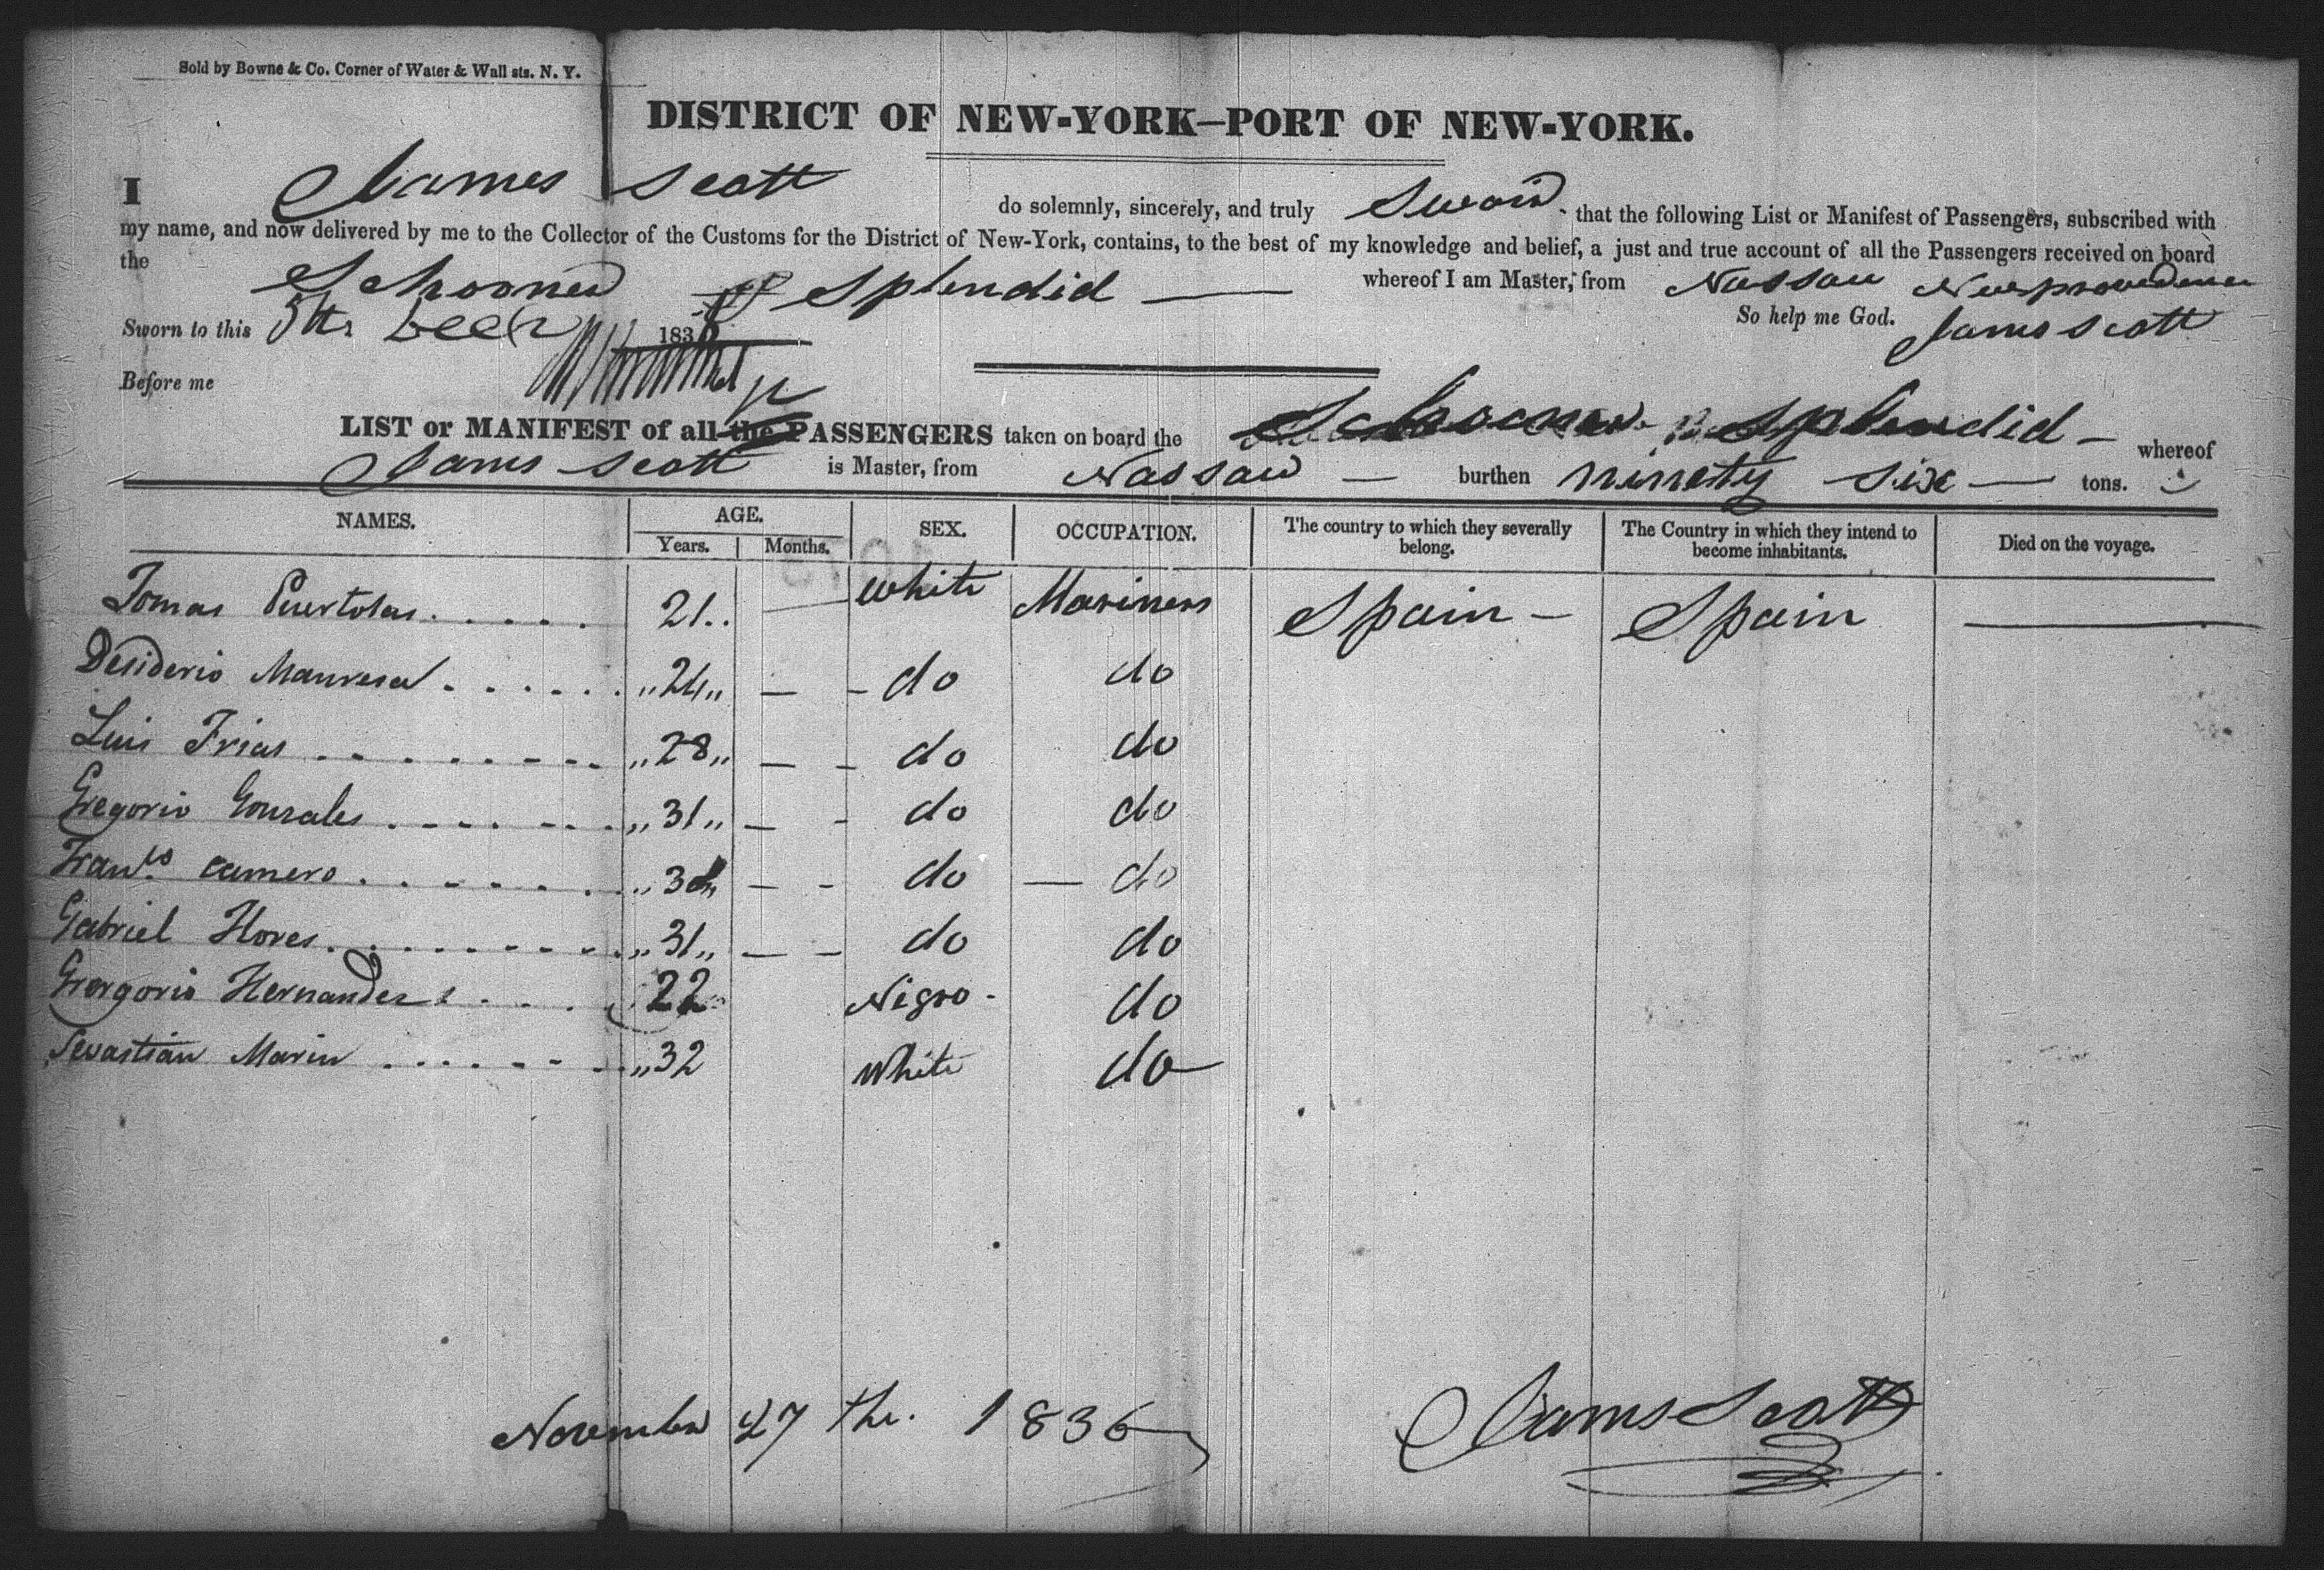 Sold by Bowne & Co. Corner of Water & Wall sts. N. Y.
DISTRICT OF NEW-YORK—PORT OF NEW-YORK.
I James Scott do solemnly, sincerely, and truly Swair that the following List or Manifest of Passengers, subscribed with
my name, and now delivered by me to the Collector of the Customs for the District of New-York, contains, to the best of my knowledge and belief, a just and true account of all the Passengers received on board
the Schooner Splendid — whereof I am Master, from Nassau Newprovedence
Sworn to this 5th Decr 1836 So help me God. James Scott
Before me
LIST or MANIFEST of all the PASSENGERS taken on board the Schooner Splendid — whereof
James Scott is Master, from Nassau — burthen ninety six — tons.
NAMES. AGE. SEX. OCCUPATION. The country to which they severally belong. The Country in which they intend to become inhabitants. Died on the voyage.
Years. Months.
Tomas Puertolas. . . . . . 21.. — white Mariners Spain – Spain —
Desiderio Manresa . . . . . . „24„ — – do do
Luis Frias . . . . . . . . „28„ — – do do
Gregorio Gonzales . . . . . . „31„ — – do do
Franco. camero . . . . . . „ — – do — do
Gabriel Flores . . . . . . . . „31„ — – do do
Grergorio Hernandez . . . 22 Nigro - do
Sevastian Marin . . . . . . „32 White do
November 27 th. 1836 James Scott